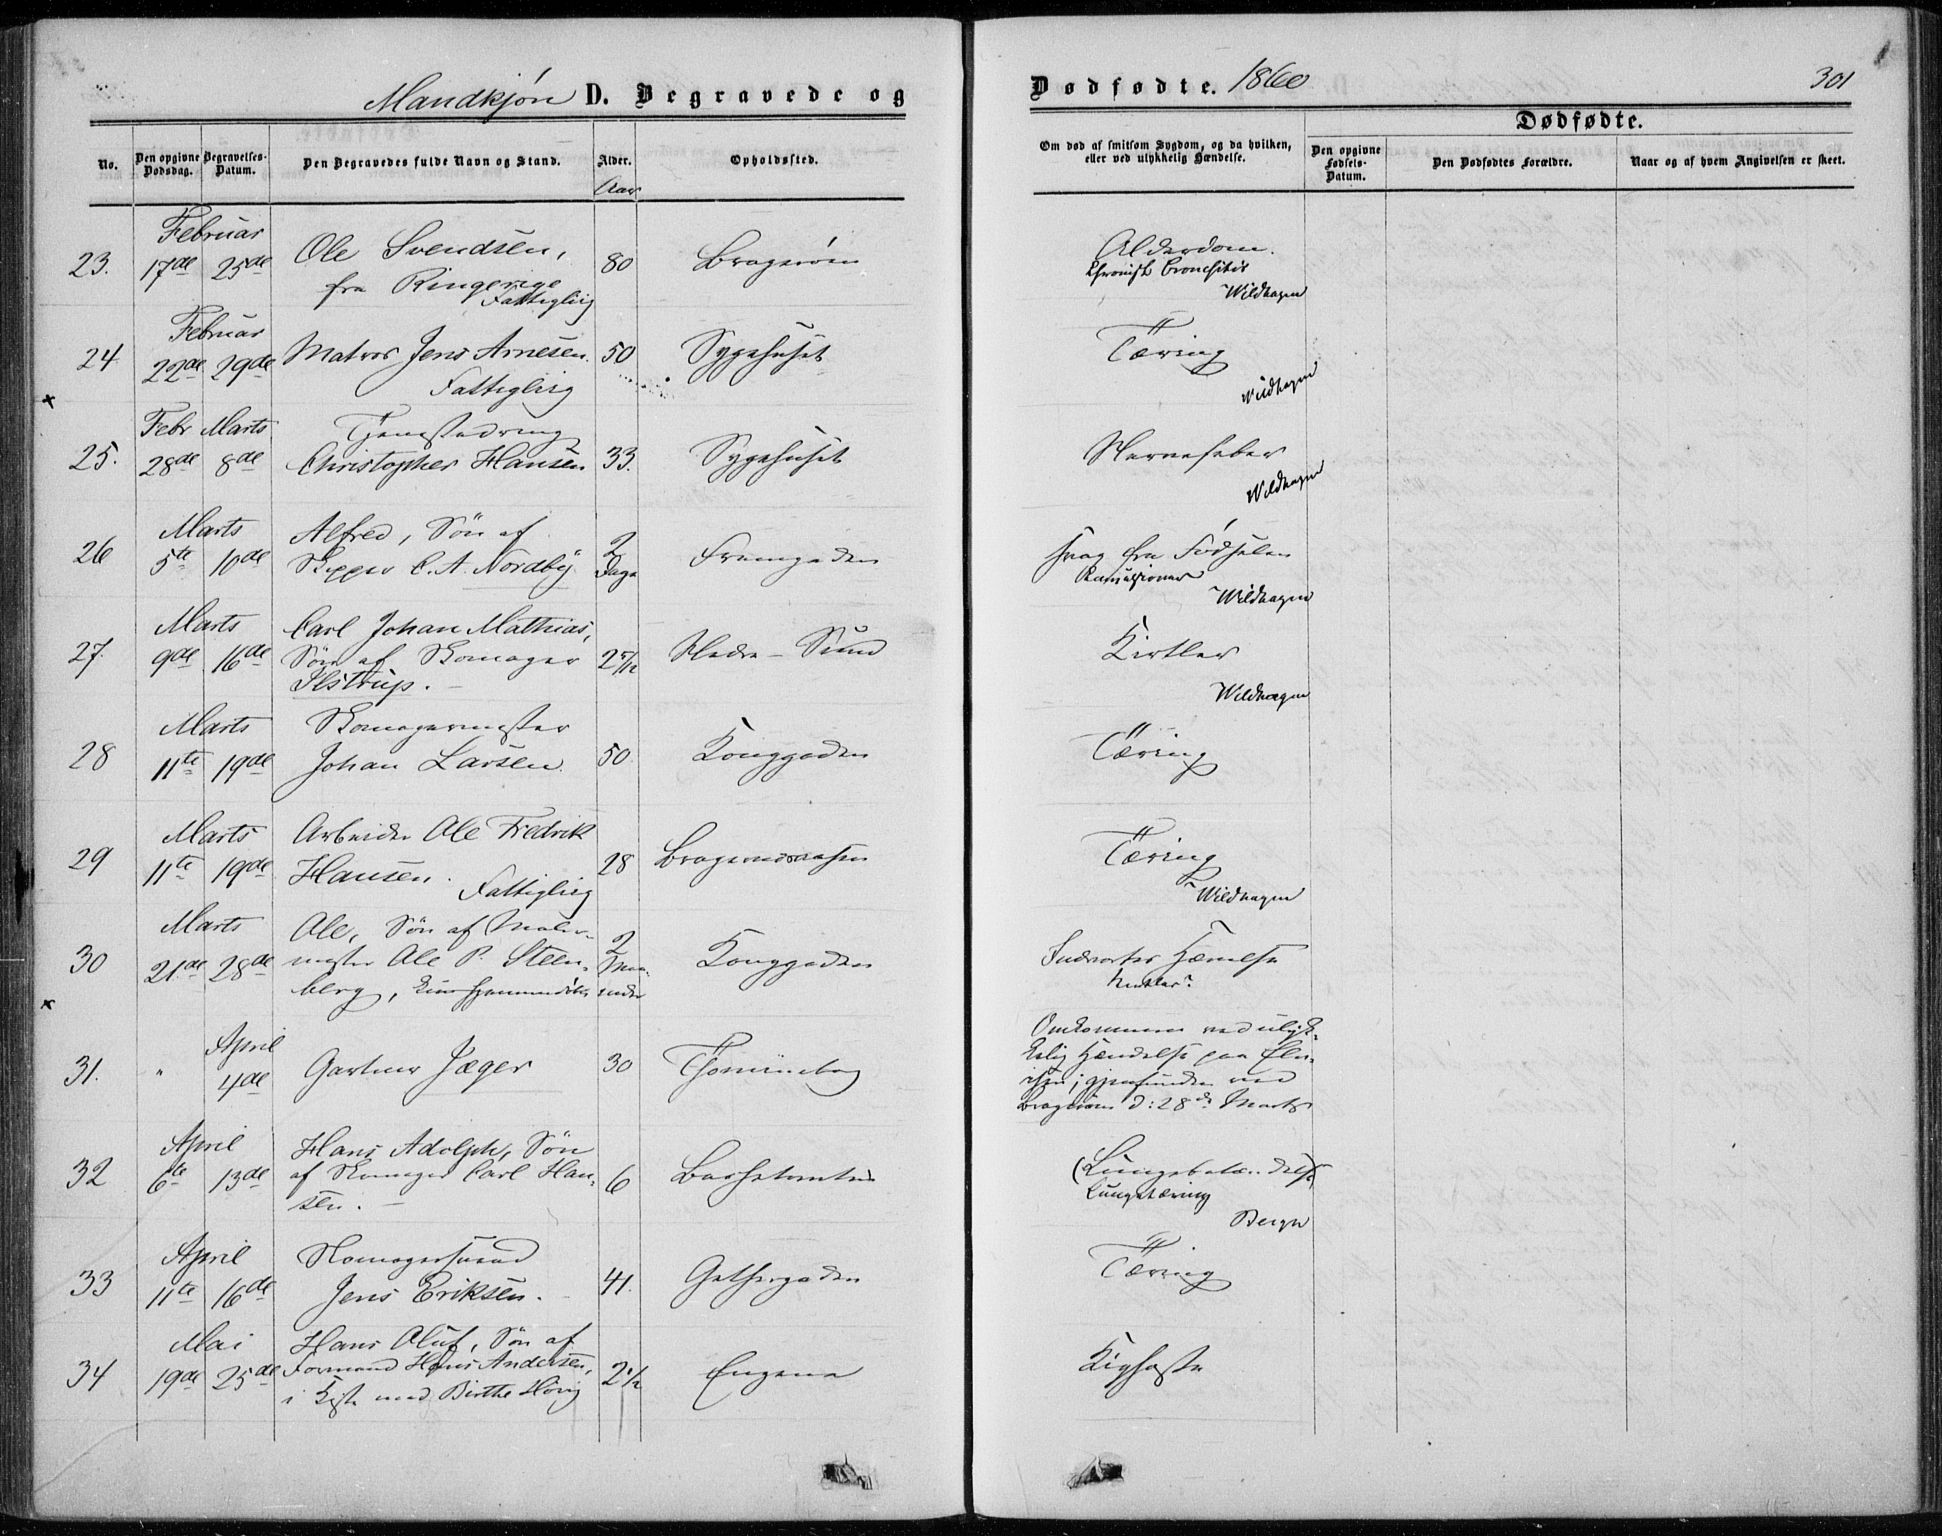 Mandkjøn D. Begravede og
Dødfødte. 1860
301
No.
Den opgivne Dødsdag.
Begravelses-Datum.
Den Begravedes fulde Navn og Stand.
Alder.
Aar
Opholdssted.
Om død af smitsom Sygdom, og da hvilken,
eller ved ulykkelig Hændelse.
Dødfødte.
Den opgivne
Fødsels-
Datum.
Den Dødfødtes Forældre.
Naar og af hvem Angivelsen er skeet.
Februar
23. 17de 25de Ole Svendsen, 80 Bragernes Alderdom.
fra Ringerige chronisk Bronchitis
Fattiglig Wildhagen
Februar
24 22de 29de Matros Jens Arnesen. 50 Sygehuset Tæring
Fattiglig Wildhagen
Febr Marts Tjenestedreng
25. 28de 8de Christopher Hansen 33. Sygehuset Nervefeber
Wildhagen
Marts Alfred, Søn af 2
26 5te 10de Skipper C. A. Nordby Dage Fremgaden svag fra Fødselen
Wildhagen
Marts Carl Johan Mathias,
27. 9de 16de Søn af Skomager 2 5/12 Nedre-Sund Kirtler
Ilstrup. Wildhagen
Marts Skomagermester
28 11te 19de Johan Larsen 50 Konggaden Tæring
Marts Arbeider Ole Fredrik
29 11te 19de Hansen. 28 Bragernesaasen Tæring
Fattiglig Wildhagen
Marts Ole, Søn af Maler-
30 21de 28de mester Ole P. Steen- 2 Maaneder Konggaden Indvortes
berg, Kirtler?
April Omkommen ved ulyk-
31. " 4de Gartner Jæger 30 kelig Hændelse paa Elv-
isen; gjenfunden ved
Bragernes d: 28de Marts
April Hans Adolph, Søn
32 6te 13de af Skomager Carl Han- 6 (Lungebetændelse)
sen. Lungetæring
April Skomagersvend
33 11te 16de Jens Eriksen. 41. Gethergaden Tæring
Mai Hans Oluf, Søn af
34 19de 25de Formand Hans Andersen, 2 1/2 Engene Kighoste
i Kiste med Birthe Hövig